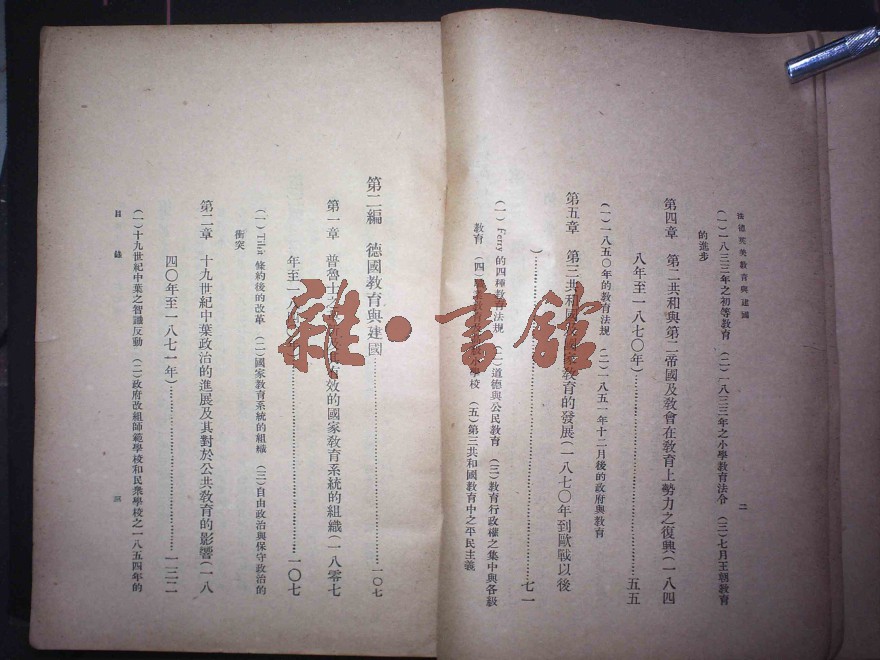 法德英美教育與建國
(一)一八三三年之初等教育 (二)一八三三年之小學教育法令 (三)七月王朝教育
的進步
第四章 第二共和與第二帝國及教會在教育上勢力之復興(一八四
八年至一八七〇年)…………五五
(一)一八五〇年的教育法規 (二)一八五一年十二月後的政府與教育
第五章 第三共和國 教育的發展(一八七〇年到歐戰以後
)…………七一
(一)Ferry的四種教育法規 (二)道德與公民教育 (三)教育行政權之集中與各級
教育 (四) 校 (五)第三共和國教育中之平民主義
二
第二編 德國教育與建國…………一〇七
第一章 普魯士 有效的國家教育系統的組織(一八零七
年至一八 …………一〇七
(一)Tilsit條約後的改革 (二)國家教育系統的組織 (三)自由政治與保守政治的
衝突
第二章 十九世紀中葉政治的進展及其對於公共教育的影響(一八
四〇年至一八七一年)…………一三二
(一)十九世紀中葉之智識反動 (二)政府改組師範學校和民衆學校之一八五四年的
目錄
三
雜·書館